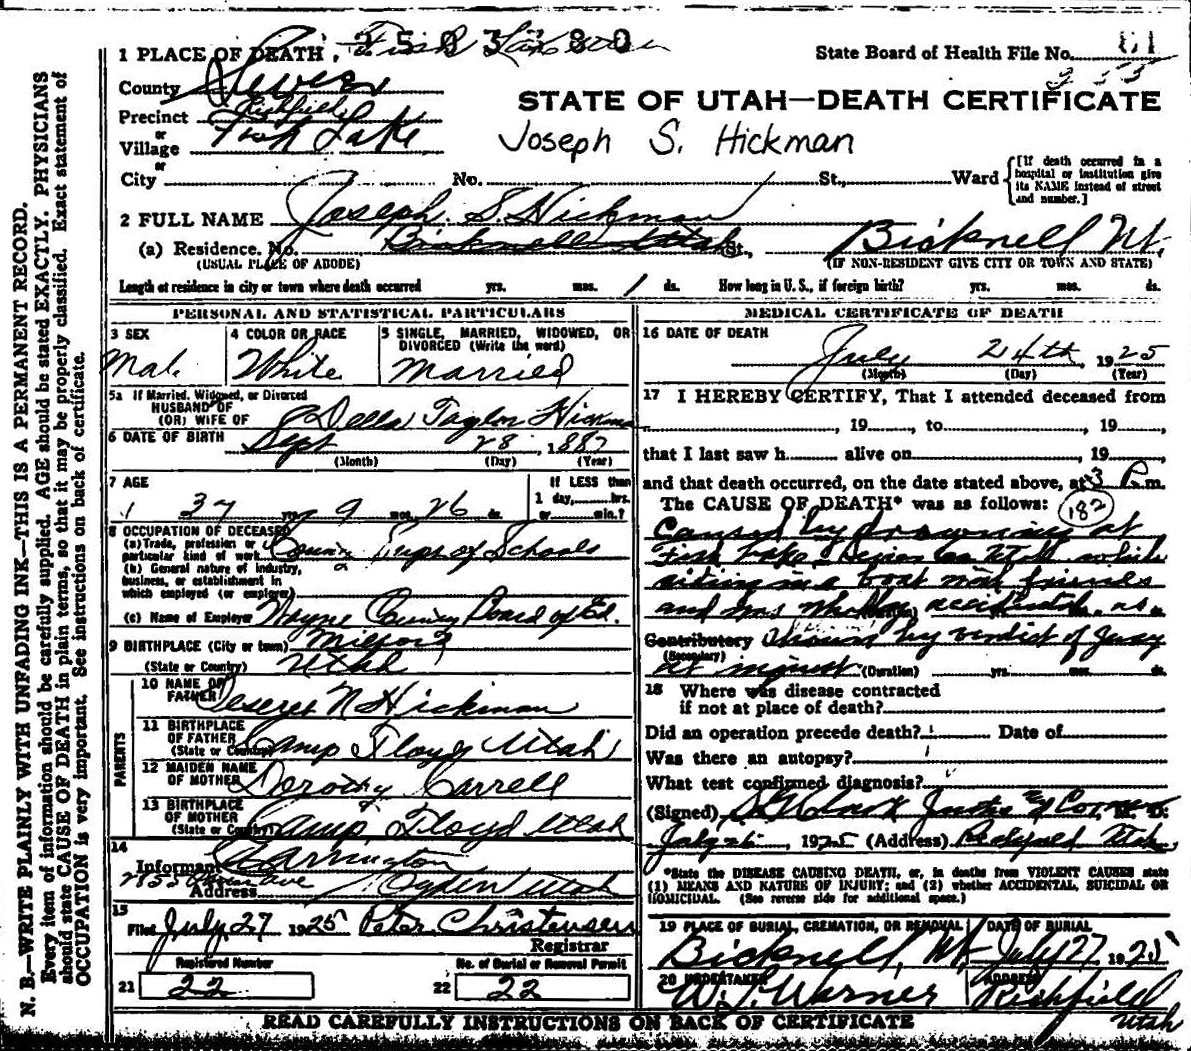 1 PLACE OF DEATH, Fish Lake Utah
State Board of Health File No. 61
255
County Sevier
STATE OF UTAH—DEATH CERTIFICATE
Precinct Richfield
or
Village Fish Lake
Joseph S. Hickman
or
City No. St., Ward
[If death occurred in a hospital or institution give its NAME instead of street and number.]
2 FULL NAME Joseph S. Hickman
(a) Residence. No. Bicknell Utah St., Bicknell Ut.
(USUAL PLACE OF ABODE) (IF NON-RESIDENT GIVE CITY OR TOWN AND STATE)
Length of residence in city or town where death occurred yrs. mos. 1 ds. How long in U. S., if foreign birth? yrs. mos. ds.
PERSONAL AND STATISTICAL PARTICULARS
3 SEX
Mal.
4 COLOR OR RACE
White
5 SINGLE, MARRIED, WIDOWED, OR
DIVORCED (Write the word)
Married
5a If Married, Widowed, or Divorced
HUSBAND OF
(OR) WIFE OF Della Taylor Hickman
6 DATE OF BIRTH Sept 28, 1887
(Month) (Day) (Year)
7 AGE
37 yrs 9 mos. 26 ds.
If LESS than
1 day, hrs.
or min.?
8 OCCUPATION OF DECEASED
(a) Trade, profession or
particular kind of work County Supt of Schools
(b) General nature of industry,
business, or establishment in
which employed (or employer)
(c) Name of Employer Wayne County Board of Ed.
9 BIRTHPLACE (City or town) Milford
(State or Country) Utah
PARENTS
10 NAME OF
FATHER Deseret N Hickman
11 BIRTHPLACE
OF FATHER
(State or Country) Camp Floyd Utah
12 MAIDEN NAME
OF MOTHER Dorothy Carrell
13 BIRTHPLACE
OF MOTHER
(State or Country) Camp Floyd Utah
14
Informant Carrington
Address Ave Ogden Utah
15
Filed July 27 1925 Peter Christensen
Registrar
Registered Number
21 22
No. of Burial or Removal Permit
22 22
MEDICAL CERTIFICATE OF DEATH
16 DATE OF DEATH
July 24th 1925
(Month) (Day) (Year)
17 I HEREBY CERTIFY, That I attended deceased from
, 19, to, 19,
that I last saw h alive on, 19
and that death occurred, on the date stated above, at 3 P.m.
The CAUSE OF DEATH* was as follows: 182
Caused by drowning at
Fish Lake, Sevier Co Utah while
riding in a boat with friends
and was wholly accidental. as
Contributory shown by verdict of Jury
(Secondary)
at inquest (Duration) yrs. mos. ds.
18 Where was disease contracted
if not at place of death?
Did an operation precede death? Date of
Was there an autopsy?
What test confirmed diagnosis?
(Signed) Justice & Coroner M. D.
July 26, 1925 (Address) Richfield Utah
*State the DISEASE CAUSING DEATH, or, in deaths from VIOLENT CAUSES state
(1) MEANS AND NATURE OF INJURY; and (2) whether ACCIDENTAL, SUICIDAL OR
HOMICIDAL. (See reverse side for additional space.)
19 PLACE OF BURIAL, CREMATION, OR REMOVAL
Bicknell, Ut.
DATE OF BURIAL
July 27 1925
20 UNDERTAKER
W. L. Warner
ADDRESS
Richfield
Utah
READ CAREFULLY INSTRUCTIONS ON BACK OF CERTIFICATE
N. B.—WRITE PLAINLY WITH UNFADING INK—THIS IS A PERMANENT RECORD.
Every item of information should be carefully supplied. AGE should be stated EXACTLY. PHYSICIANS
should state CAUSE OF DEATH in plain terms, so that it may be properly classified. Exact statement of
OCCUPATION is very important. See instructions on back of certificate.